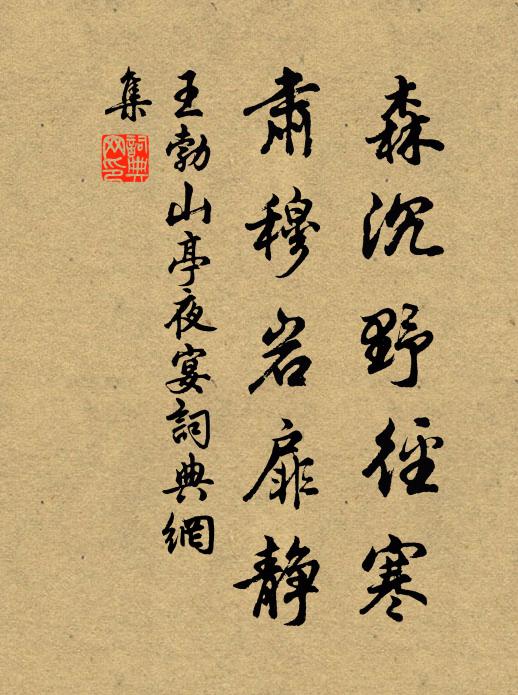 森沉野径寒
肃穆岩扉静
王勃山亭夜宴詞典網
集
詞典网印